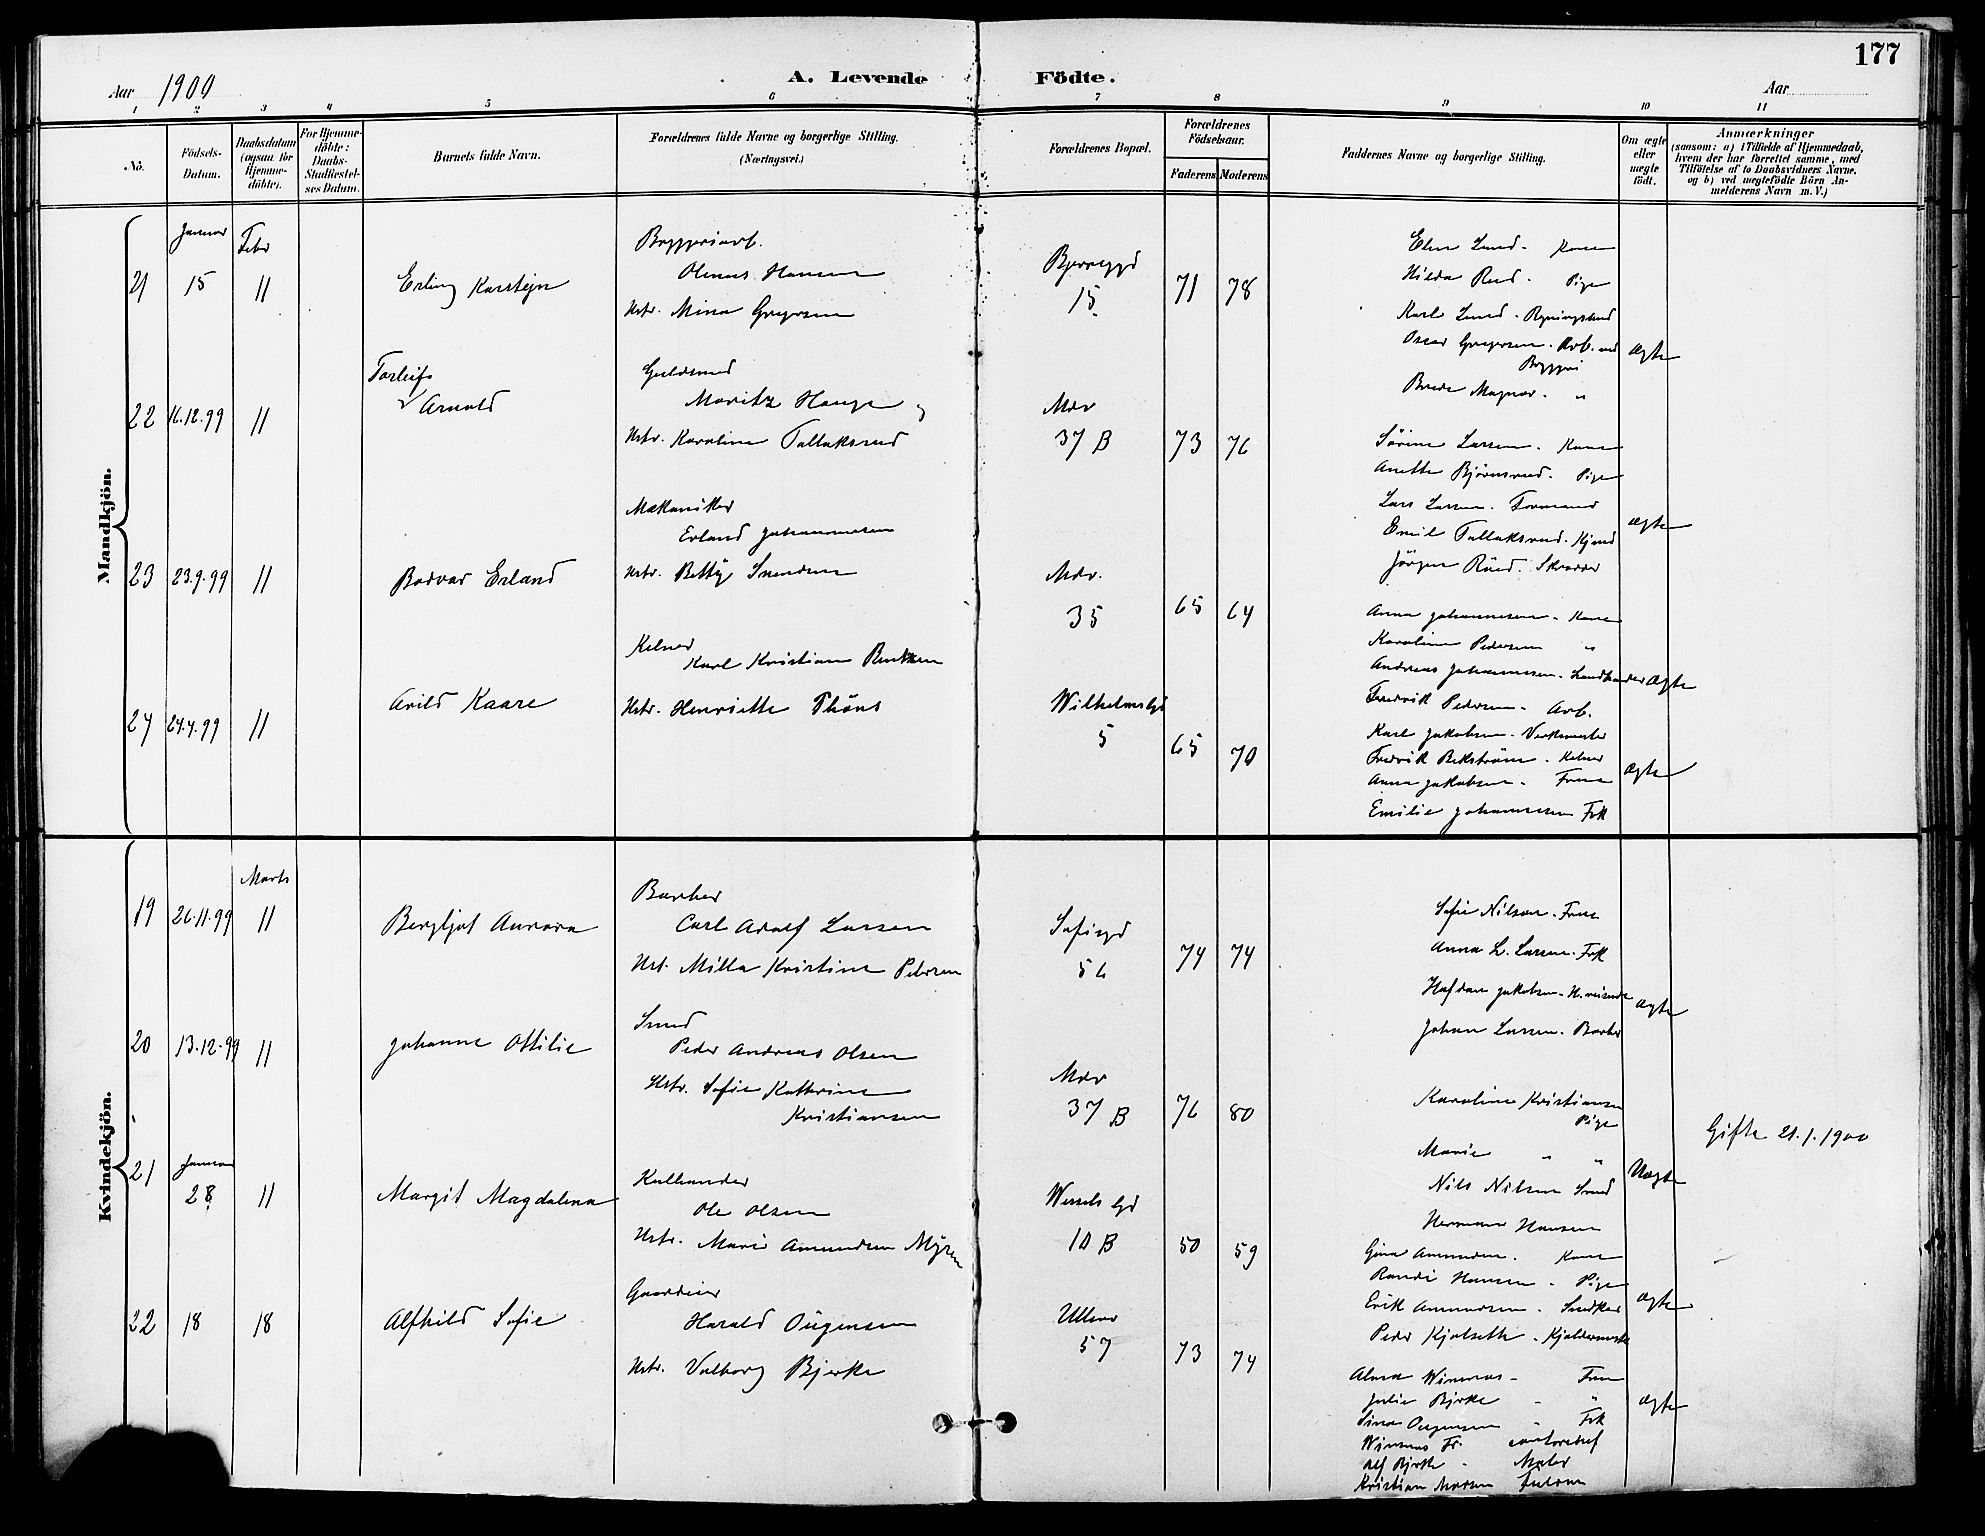 177
Aar 1900
A. Levende Födte.
Aar
1 2 3 4 5 6 7 8 9 10 11
No.
Födsels-
Datum.
Daabsdatum
(ogsaa for
Hjemme-
döbte).
For Hjemme-
döbte:
Daabs-
Stadfæstel-
ses Datum.
Barnets fulde Navn.
Forældrenes fulde Navne og borgerlige Stilling.
(Næringsvei.)
Forældrenes Bopæl.
Forældrenes
Födselsaar.
Faderens Moderens
Faddernes Navne og borgerlige Stilling.
Om ægte
eller
uægte
födt.
Anmærkninger
(saasom: a) i Tilfælde af Hjemmedaab,
hvem der har forrettet samme, med
Tilföielse af to Daabsvidners Navne.
og b) ved uægtefödte Börn An-
melderens Navn m. V.)
Mandkjön.
Januar Febr
21 15 11
Erling Karstejn
Bryggeriarb.
Olinus Hansen
Hstr. Mina Gregersen
15
71 78
Elen Lund - Kone
Hilda Rud - Pige
Karl Lund -
Oscar Gregersen - Arb. ved
Bryggeri
Magnar - "
ægte
22 16.12.99 11
Torleif
Arnold
Guldsmed
Moritz Hauge
Hstr. Karoline Tollaksrud
Mdv
37 B
73 76
Sørine Larsen - Kone
Anette Bjørnsrud - Pige
Lars Larsen - Formand
Emil Tollaksrud -
Jörgen Röed. Skrædder
ægte
23 23.9.99 11
Bodvar Erland
Mekaniker
Erland Johannesen
Hstr. Betty Svendsen
Mdv.
35
65 64
Anna Johannesen - Kone
Karoline Pedersen "
Andreas Johannesen - Landhandler
Fredrik Pedersen - Arb.
ægte
24 24.4.99 11
Arild Kaare
Kelner
Karl Kristian Berntsen
Hstr. Henriette Thöns
Wilhelmsgd
5
65 70
Karl Jakobsen - Verkmester
Fredrik Bekström - Kelner
Anna Jakobsen - Frue
Emilie Johannesen Frk
ægte
Kvindekjön.
Marts
19 26.11.99 11
Bergljot Aurora
Barber
Carl Adolf Larsen
Hst. Milla Kristine Petersen
Sofiegd
56
74 74
Sofie Nilsen - Frue
Anna L. Larsen - Frk
Halfdan Jakobsen - H.reisende
Johan Larsen - Barber
ægte
20 13.12.99 11
Johanne Ottilie
Smed
Peder Andreas Olsen
Hstr. Sofie Kathrine
Kristiansen
Mdv
37 B
76 80
Karoline Kristiansen
Pige
Marie " "
Nils Nilsen Smed
Herman Hansen
Uægte
Gifte 21.1.1900
Januar
21 28 11
Margit Magdalena
Kulhandler
Ole Olsen
Hstr. Marie Amundsen Myren
Wessels gd
10 B
50 59
Gina Amundsen - Kone
Randi Hansen - Pige
Erik Amundsen - Snedker
Peder Kjolseth - Kjeldermester
ægte
22 18 18
Alfhild Sofie
Gaardeier
Harald Ougensen
Hstr. Valborg Bjerke
Ullev
57
73 74
Alma Winsnes - Frue
Julie Bjerke - "
Sina Ougensen - Frk
Winsnes Fr.
Alf Bjerke - Maler
Kristian
ægte